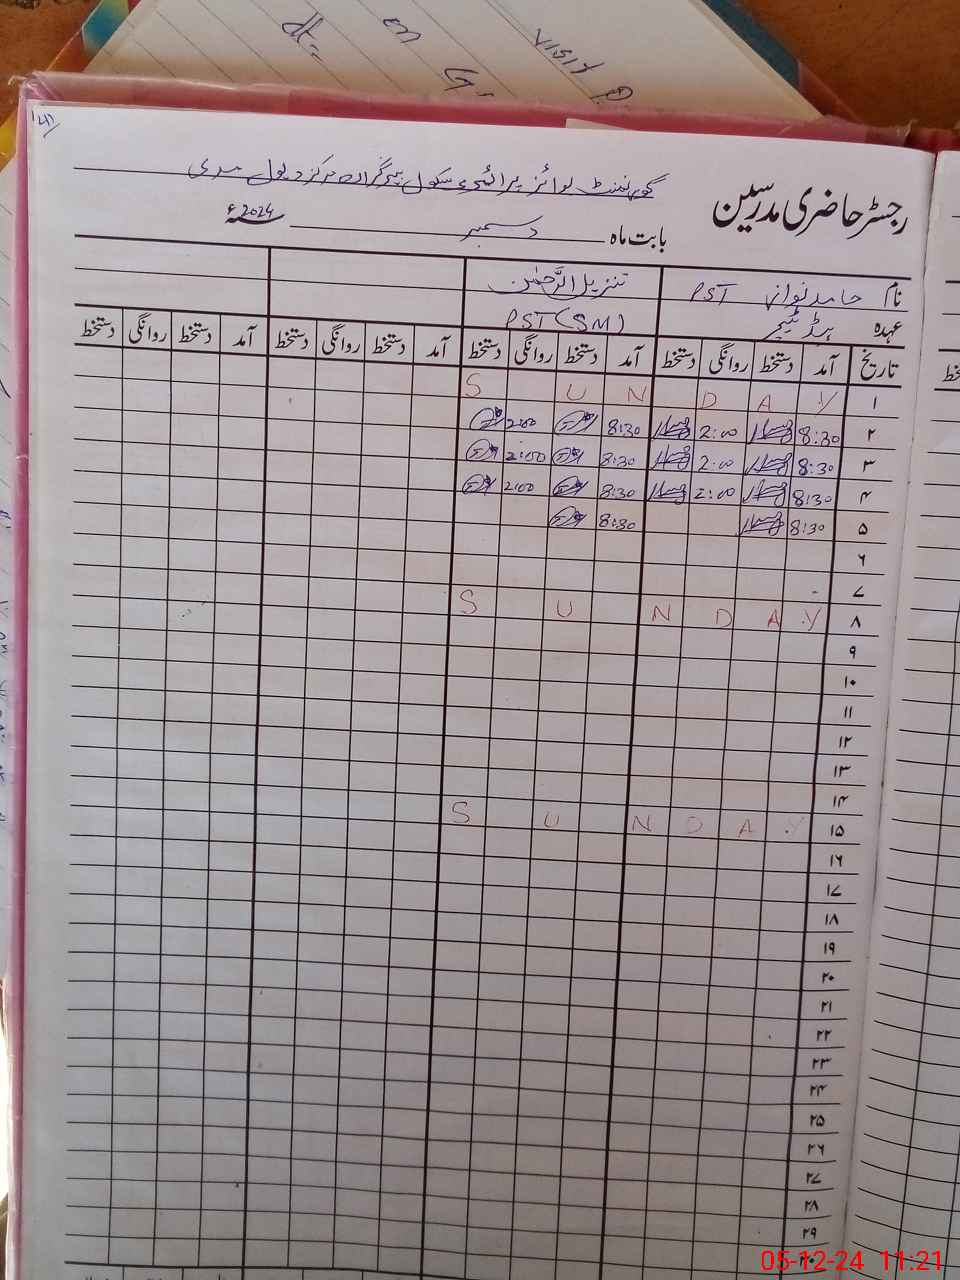 visit
رجسٹر حاضری مدرسین
گورنمنٹ بوائز پرائمری سکول
بابت ماہ دسمبر 2024ء
نام حامد نواز PST تنزیل الرحمٰن
عہدہ ہیڈ ٹیچر PST (SM)
تاریخ آمد دستخط روانگی دستخط آمد دستخط روانگی دستخط آمد دستخط روانگی دستخط آمد دستخط روانگی دستخط
۱ S U N D A Y
۲ 8:30 2:00 8:30 2:00
۳ 8:30 2:00 8:30 2:00
۴ 8:30 2:00 8:30 2:00
۵ 8:30 8:30
۶
۷
۸ S U N D A Y
۹
۱۰
۱۱
۱۲
۱۳
۱۴
۱۵ S U N D A Y
۱۶
۱۷
۱۸
۱۹
۲۰
۲۱
۲۲
۲۳
۲۴
۲۵
۲۶
۲۷
۲۸
۲۹
۳۰
05-12-24 11:21